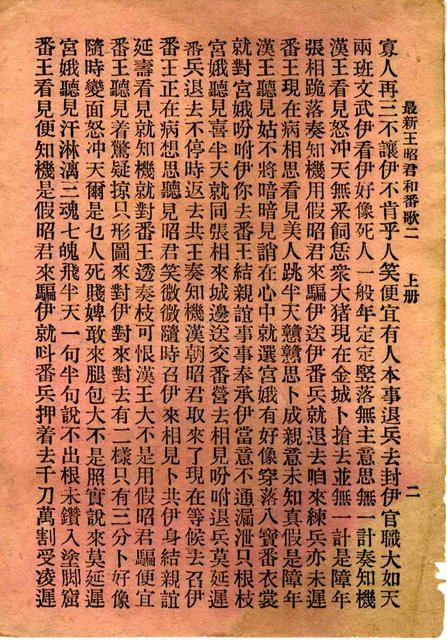 寡人再三不讓伊不肯乎人笑便宜有人本事退兵去封伊官職大如天
兩班文武伊看伊好像死人一般年定定竪落無主意思無一計奏知機
漢王看見怒冲天無釆飼恁衆大猪現在金城卜搶去並無一計是障年
張相跪落奏知機用假昭君來騙伊送伊番兵就退去咱來練兵亦未遲
番王現在病相思看見美人跳半天戇戇思卜成親意未知真假是障年
漢王聽見姑不將暗暗見誚在心中就選宮娥有好像穿落八寶番衣裳
就對宮娥吩咐伊你去番王結親誼事事奉承伊當意不通漏泄只根枝
宮娥聽見喜半天就同張相來城邊送交番營去相見吩咐退兵莫延遲
番兵退去不停時返去共王奏知機漢朝昭君取來了現在等候去召伊
番王正在病想思聽見昭君笑微微隨時召伊來相見卜共伊身結親誼
延壽看見就知機就對番王透奏枝可恨漢王大不是用假昭君騙便宜
番王聽見着驚疑掠只形圖來對伊對來對去有二樣只有三分卜好像
隨時變面怒冲天爾是乜人死賤婢敢來腿包大不是照實說來莫延遲
宮娥聽見汗淋漓三魂七魄飛半天一句半句說不出根未鑽入塗脚窟
番王看見便知機是假昭君來騙伊就叫番兵押着去千刀萬割受凌遲
最新王昭君和番歌二 上册 二